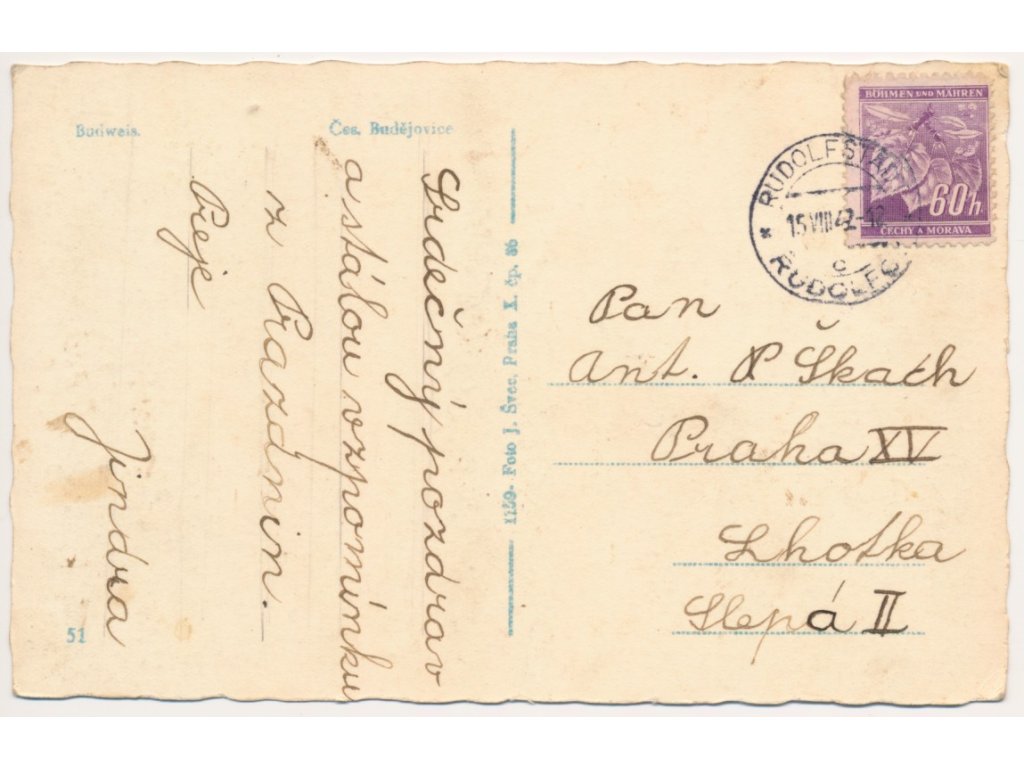 Budweis.
Čes. Budějovice
Srdečný pozdrav
a stálou vzpomínku
z Prazdnin.
Přeje
Jindra
51
1159- Foto J. Švec, Praha X. čp. 36
BÖHMEN UND MÄHREN
60h
ČECHY A MORAVA
RUDOLFSTADT
15 VIII 42-18
c
RUDOLFO
Pan
Ant. P Škach
Praha XV
Lhotka
Slepá II